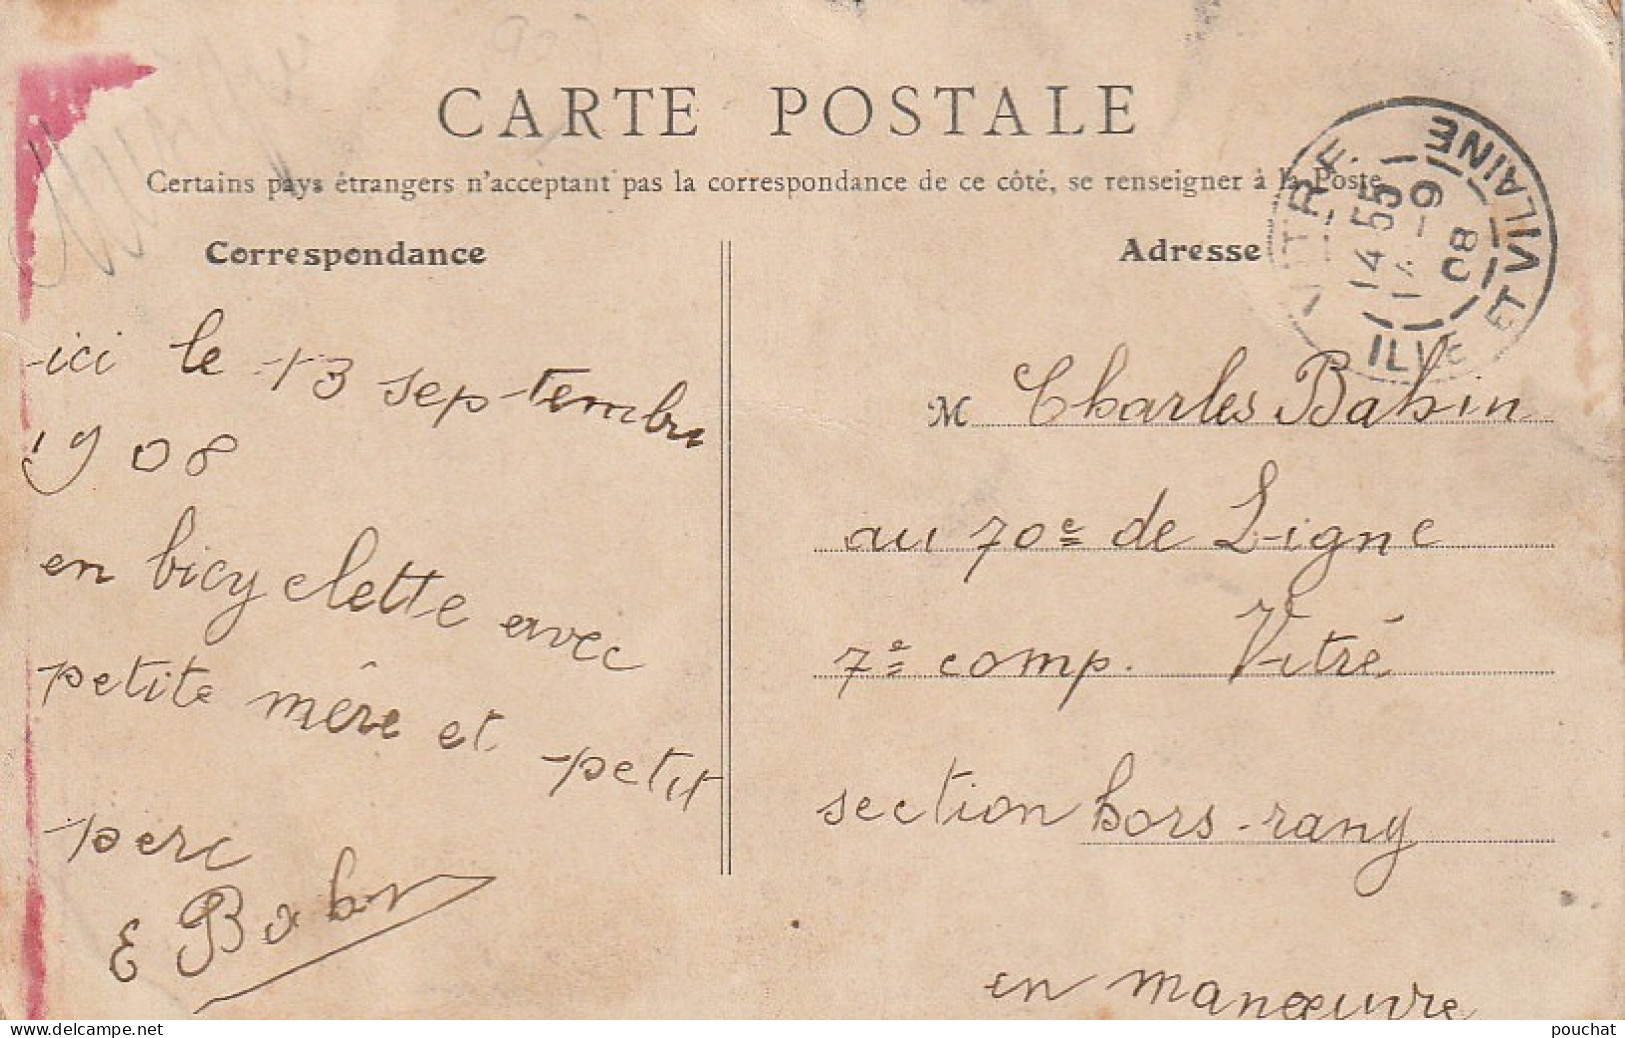 CARTE POSTALE
Certains pays étrangers n'acceptant pas la correspondance de ce côté, se renseigner à la Poste.
Correspondance
ici le 13 septembre
1908
en bicyclette avec
petite mère et petit
père
E Babin
Adresse
VITRÉ
ILLE ET VILAINE
14 55
14 -9
08
M Charles Babin
au 70e de Ligne
7e comp. Vitré
section hors-rang
en manœuvre
delcampe.net
pouchat